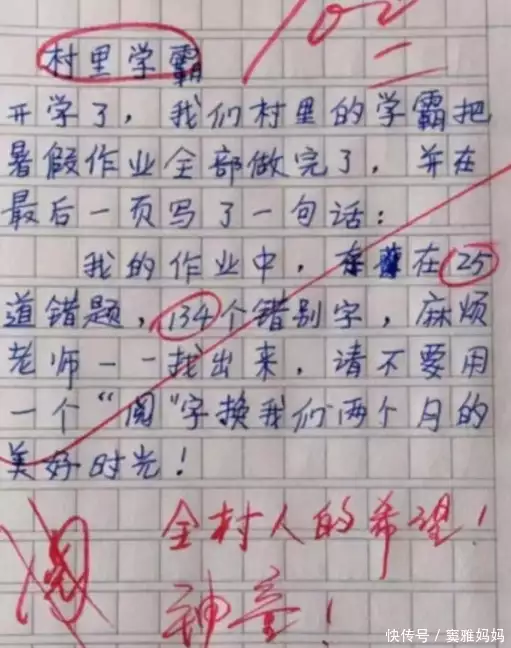 100
村里学霸
开学了，我们村里的学霸把
暑假作业全部做完了，并在
最后一页写了一句话：
我的作业中，在25
道错题，134个错别字，麻烦
老师一一找出来，请不要用
一个“阅”字换我们两个月的
美好时光！
阅
全村人的希望！
神童！
快传号／窦雅妈妈